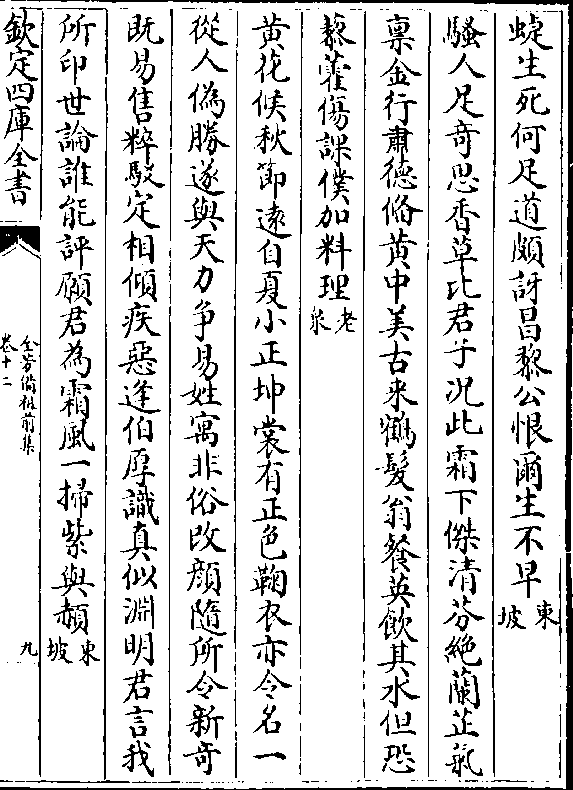 蜨生死何足道頗訝昌黎公恨爾生不早東坡
騷人足竒思香草比君子况此霜下傑清芬絶蘭茝氣
禀金行肅德脩黄中美古来鶴髮翁餐英飲其水但恐
藜藿傷課僕加料理老泉
黄花候秋節逺自夏小正坤裳有正色鞠衣亦令名一
從人偽勝遂與天力争易姓寓非俗改顔隨所令新竒
既易售粹駁定相傾疾惡逢伯厚識真似淵明君言我
所印世論誰能評願君為霜風一掃紫與赬東坡
欽定四庫全書
全芳備祖前集
卷十二
九